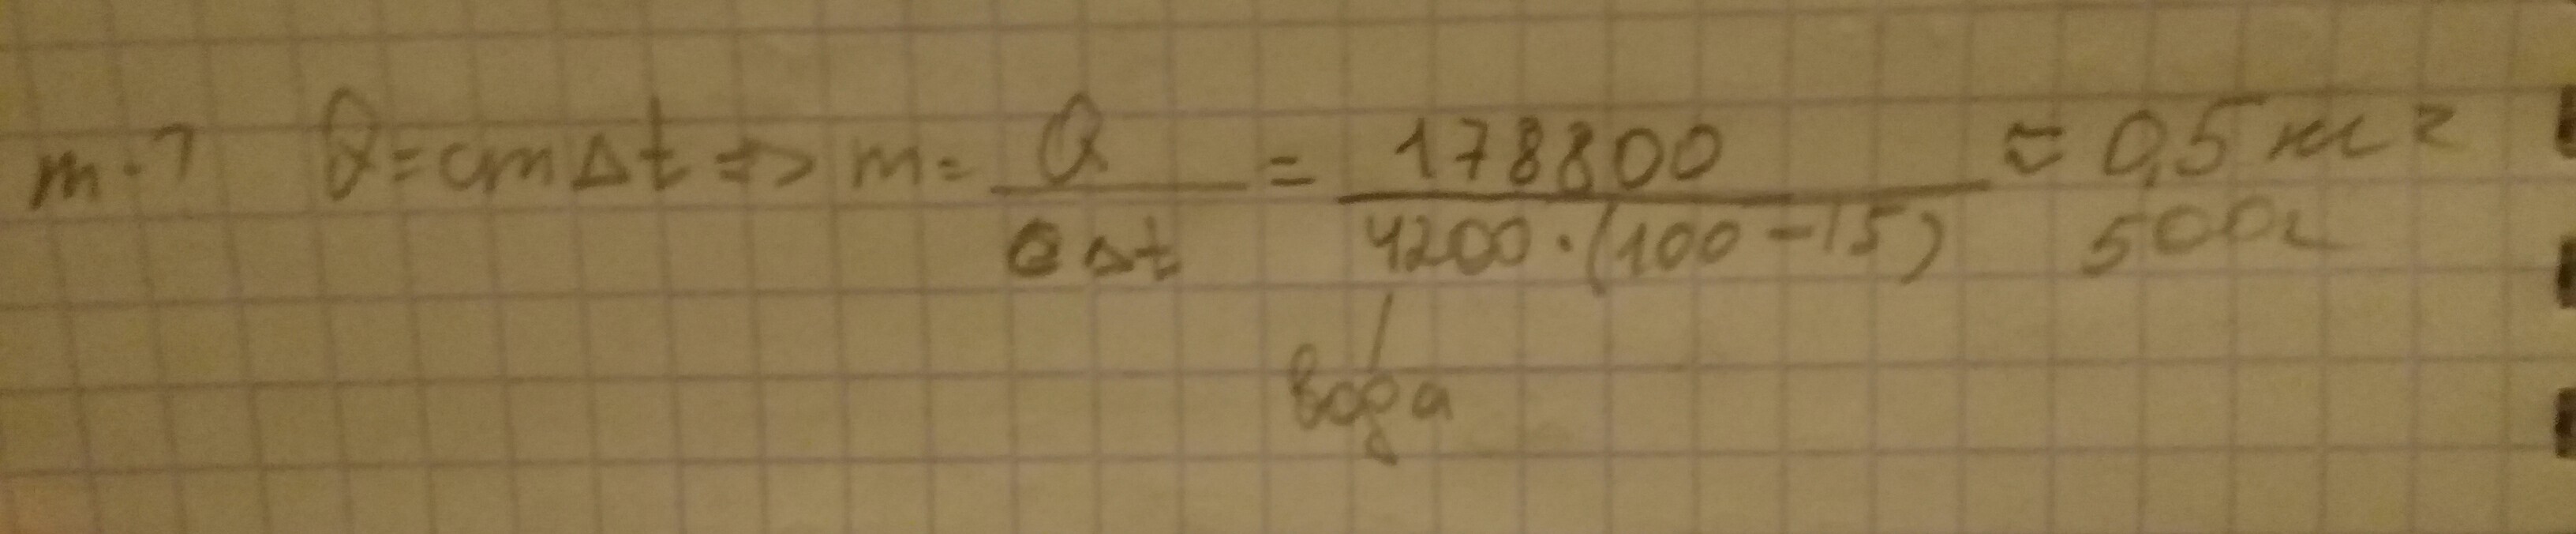 m-? Q=cmΔt => m= Q/cΔt = 178800/4200·(100-15) ≈ 0,5 кг
500г
вода